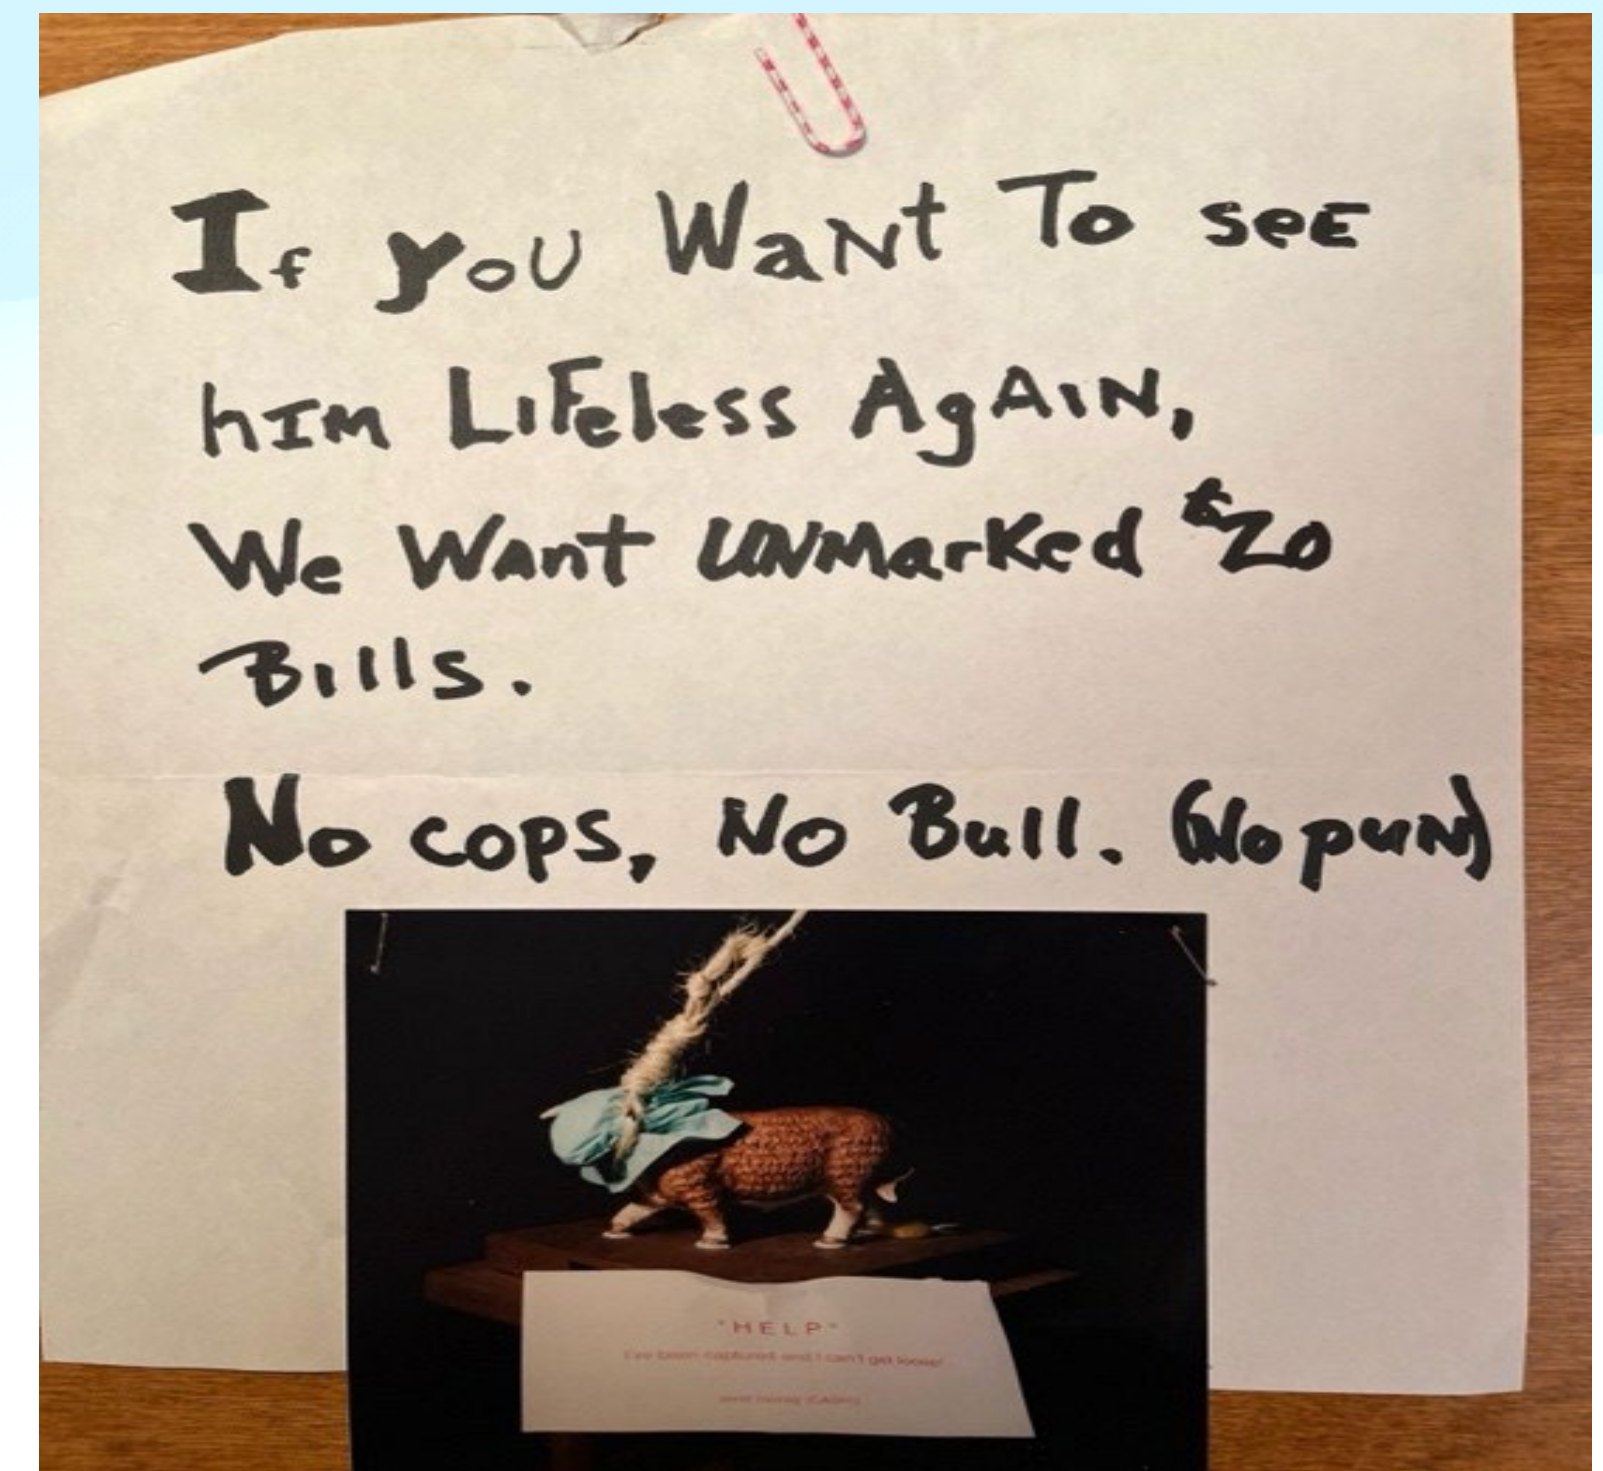 If you Want To see
him Lifeless Again,
We Want unmarked $20
Bills.
No cops, No Bull. (No pun)
"HELP"
I've been captured and I can't get loose!